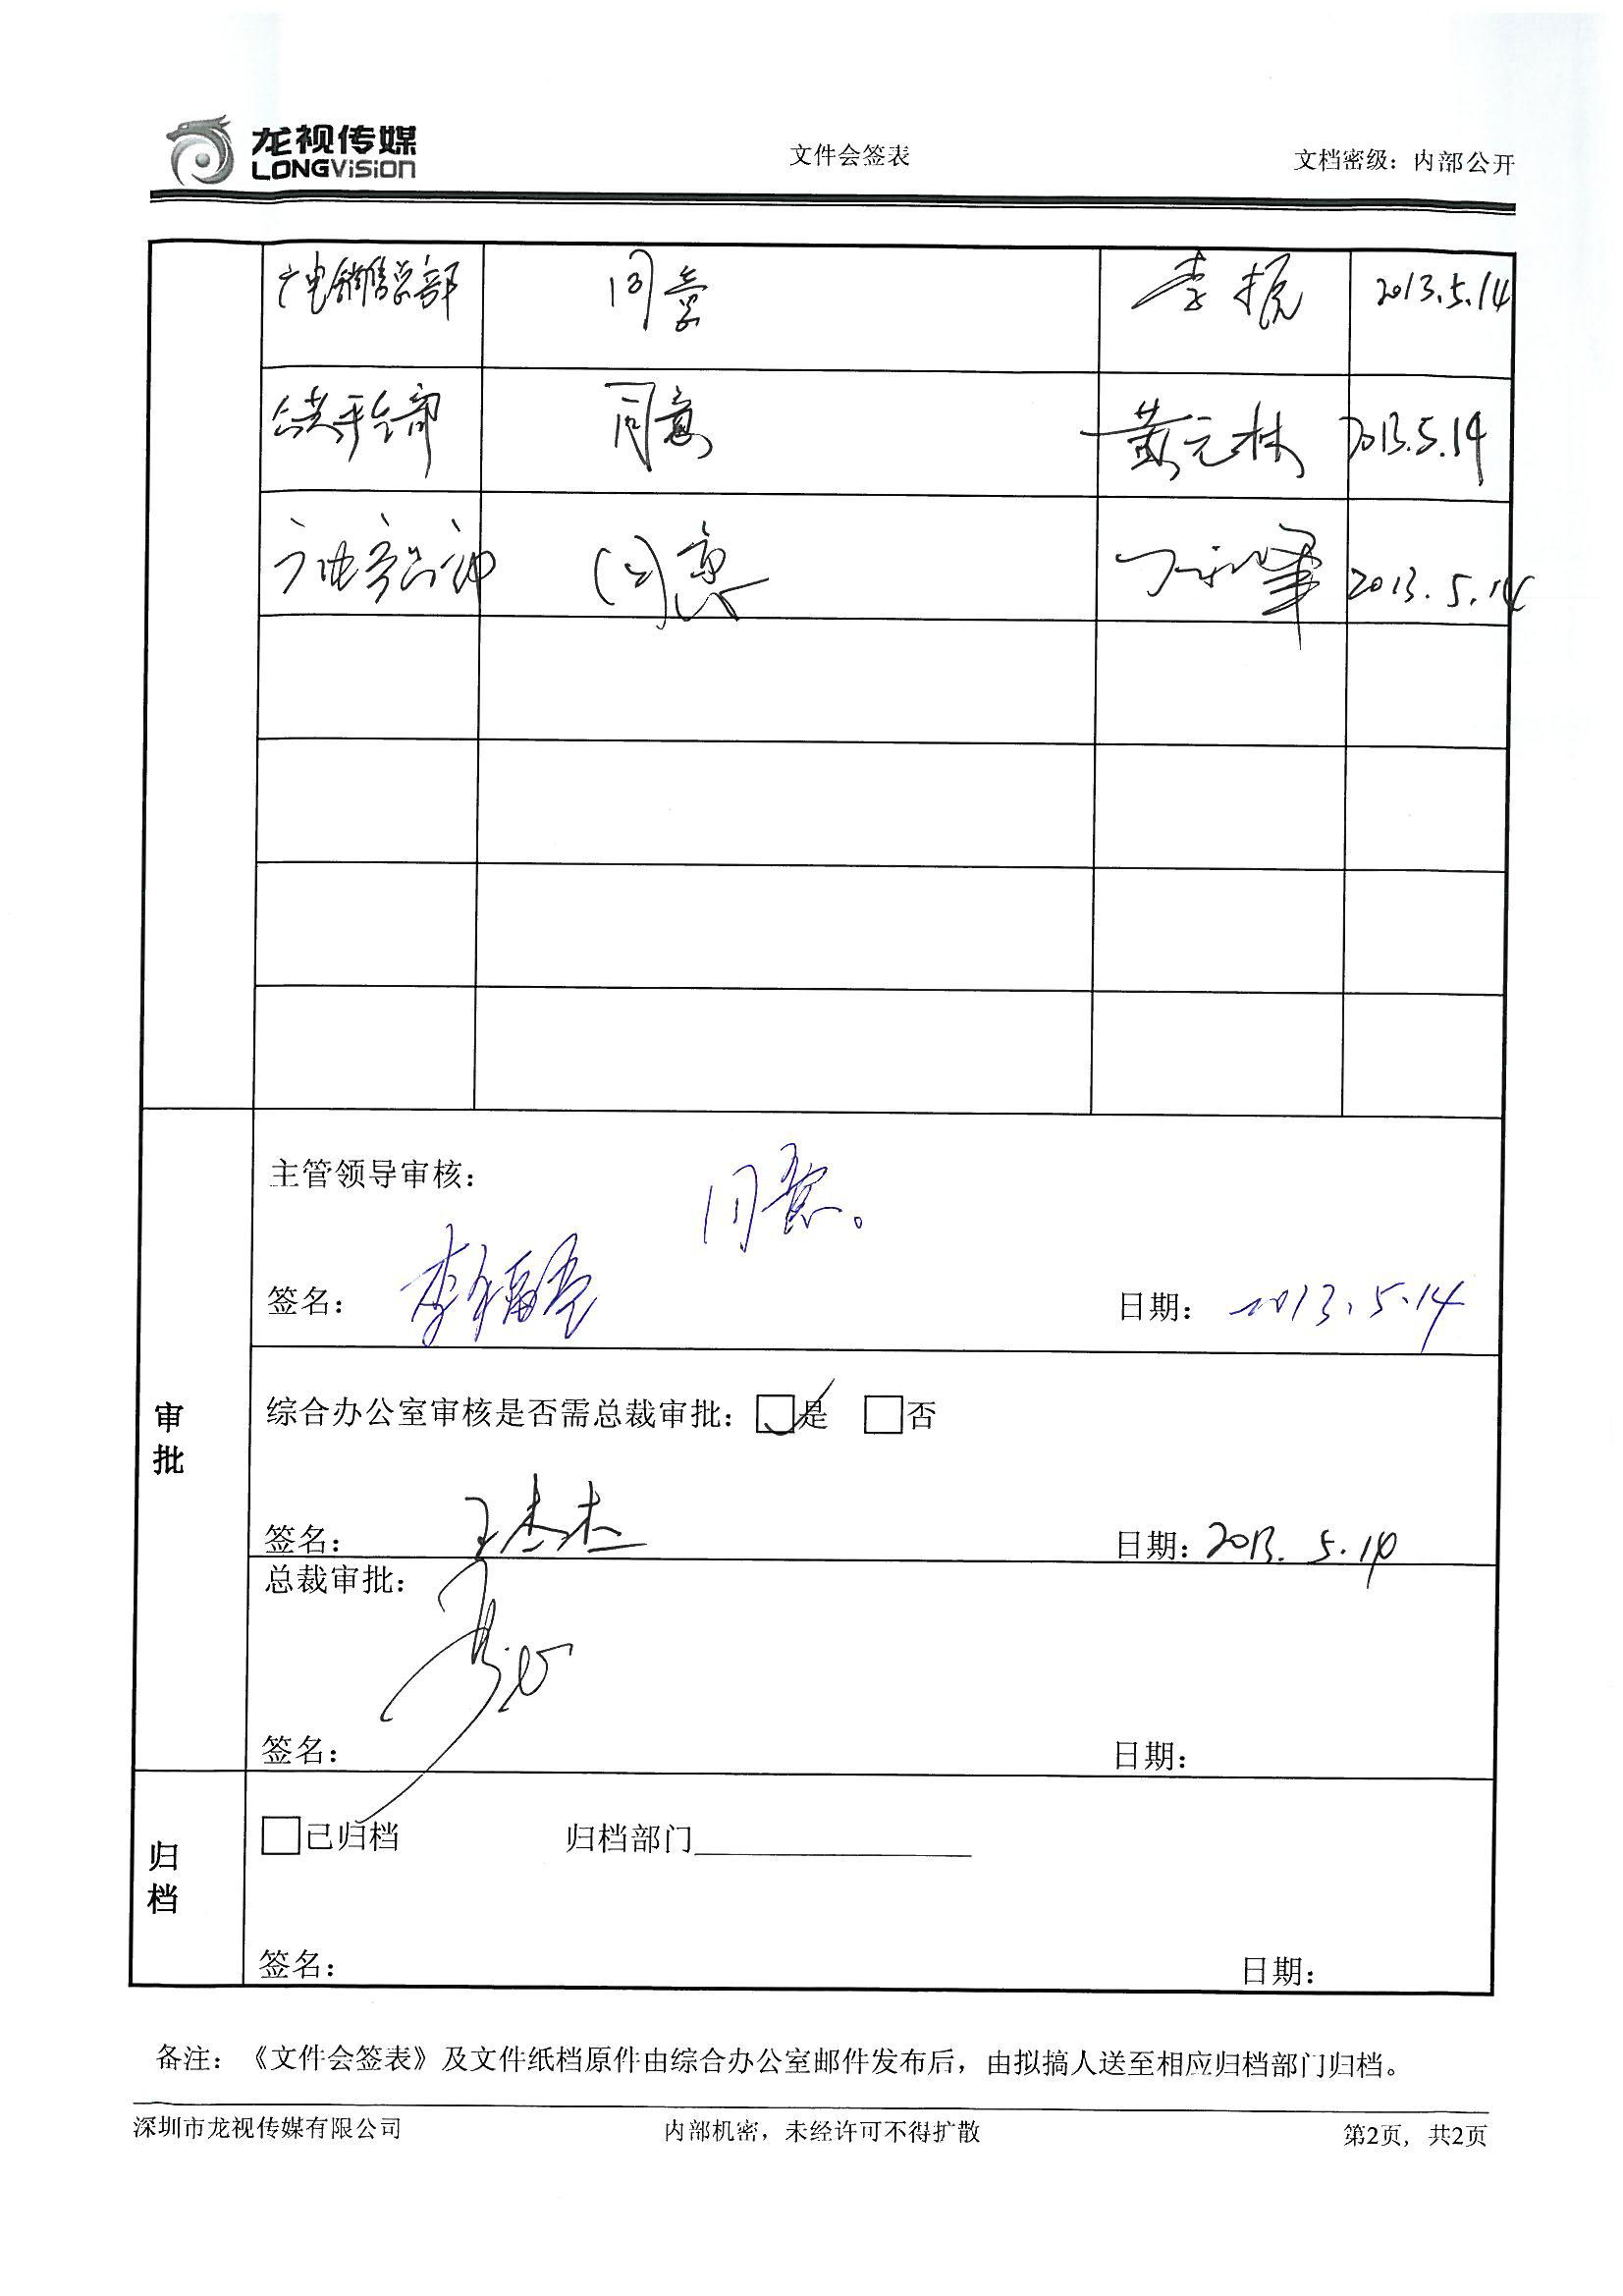 龙视传媒
LONGVISION
文件会签表
文档密级：内部公开
广电销售总部 同意 李振 2013.5.14
公共平台部 同意 黄元林 2013.5.14
同意 2013.5.14
主管领导审核：
同意。
签名： 日期： 2013.5.14
审批
综合办公室审核是否需总裁审批：□是 □否
签名： 王杰杰 日期：2013.5.14
总裁审批：
签名： 日期：
归档
□已归档 归档部门
签名： 日期：
备注：《文件会签表》及文件纸档原件由综合办公室邮件发布后，由拟搞人送至相应归档部门归档。
深圳市龙视传媒有限公司 内部机密，未经许可不得扩散 第2页，共2页